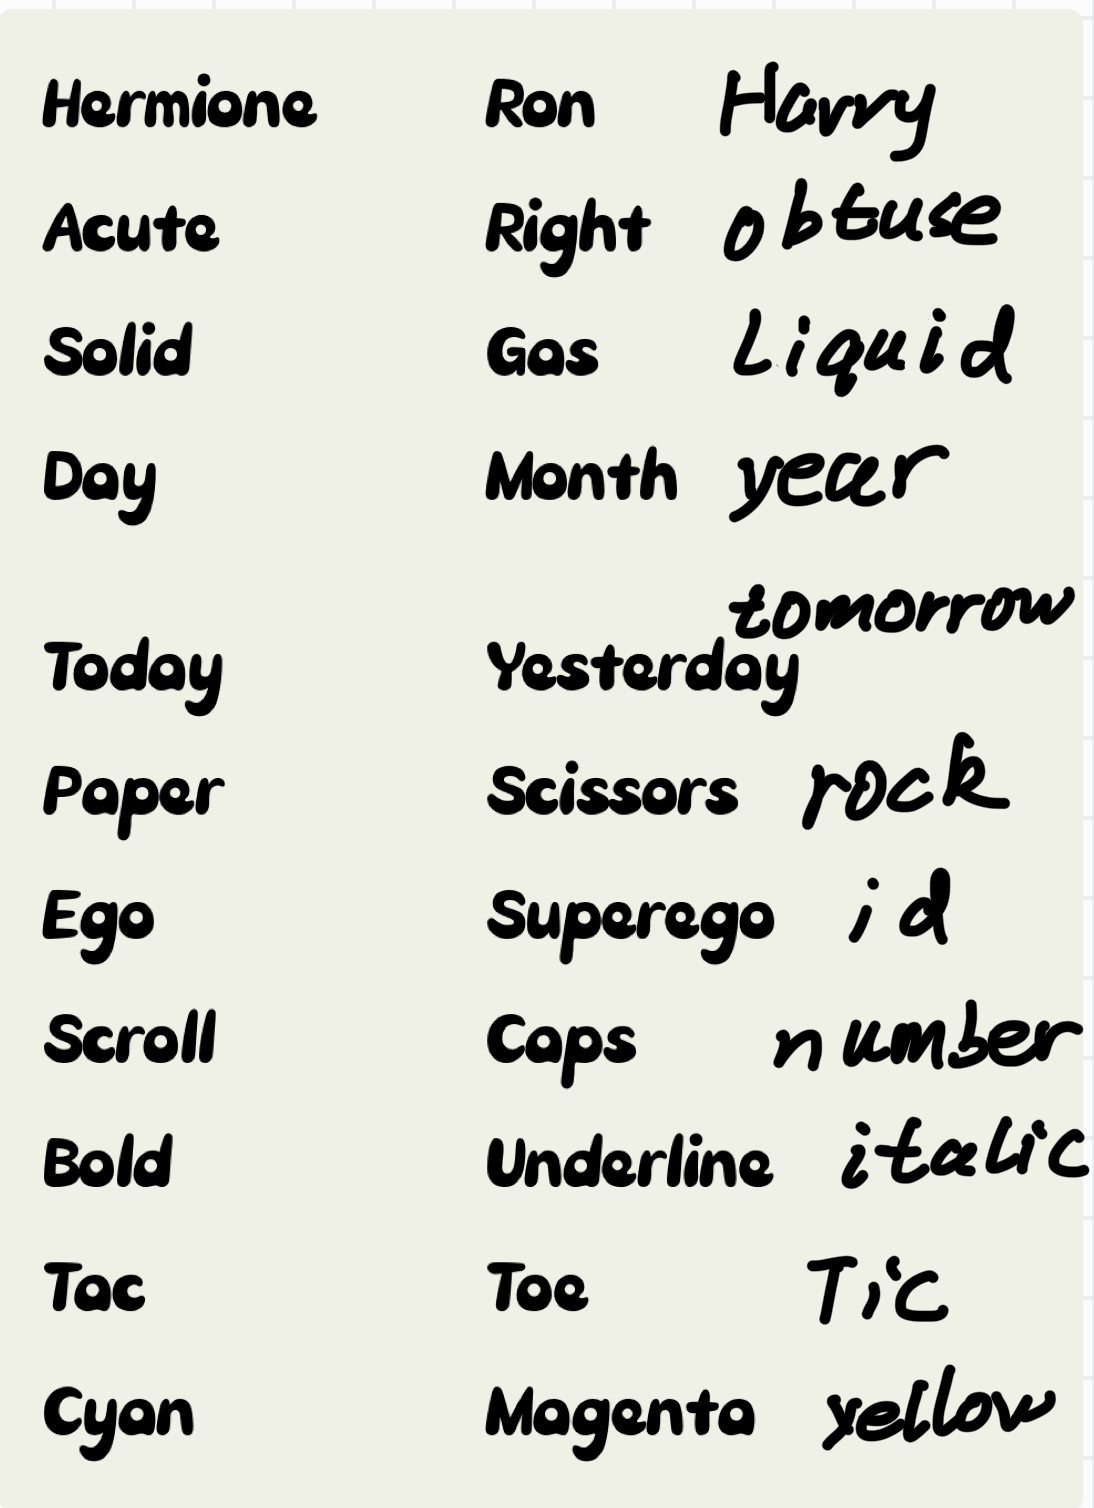 Hermione Ron Harry
Acute Right obtuse
Solid Gas Liquid
Day Month year
tomorrow
Today Yesterday
Paper Scissors rock
Ego Superego id
Scroll Caps number
Bold Underline italic
Tac Toe Tic
Cyan Magenta yellow